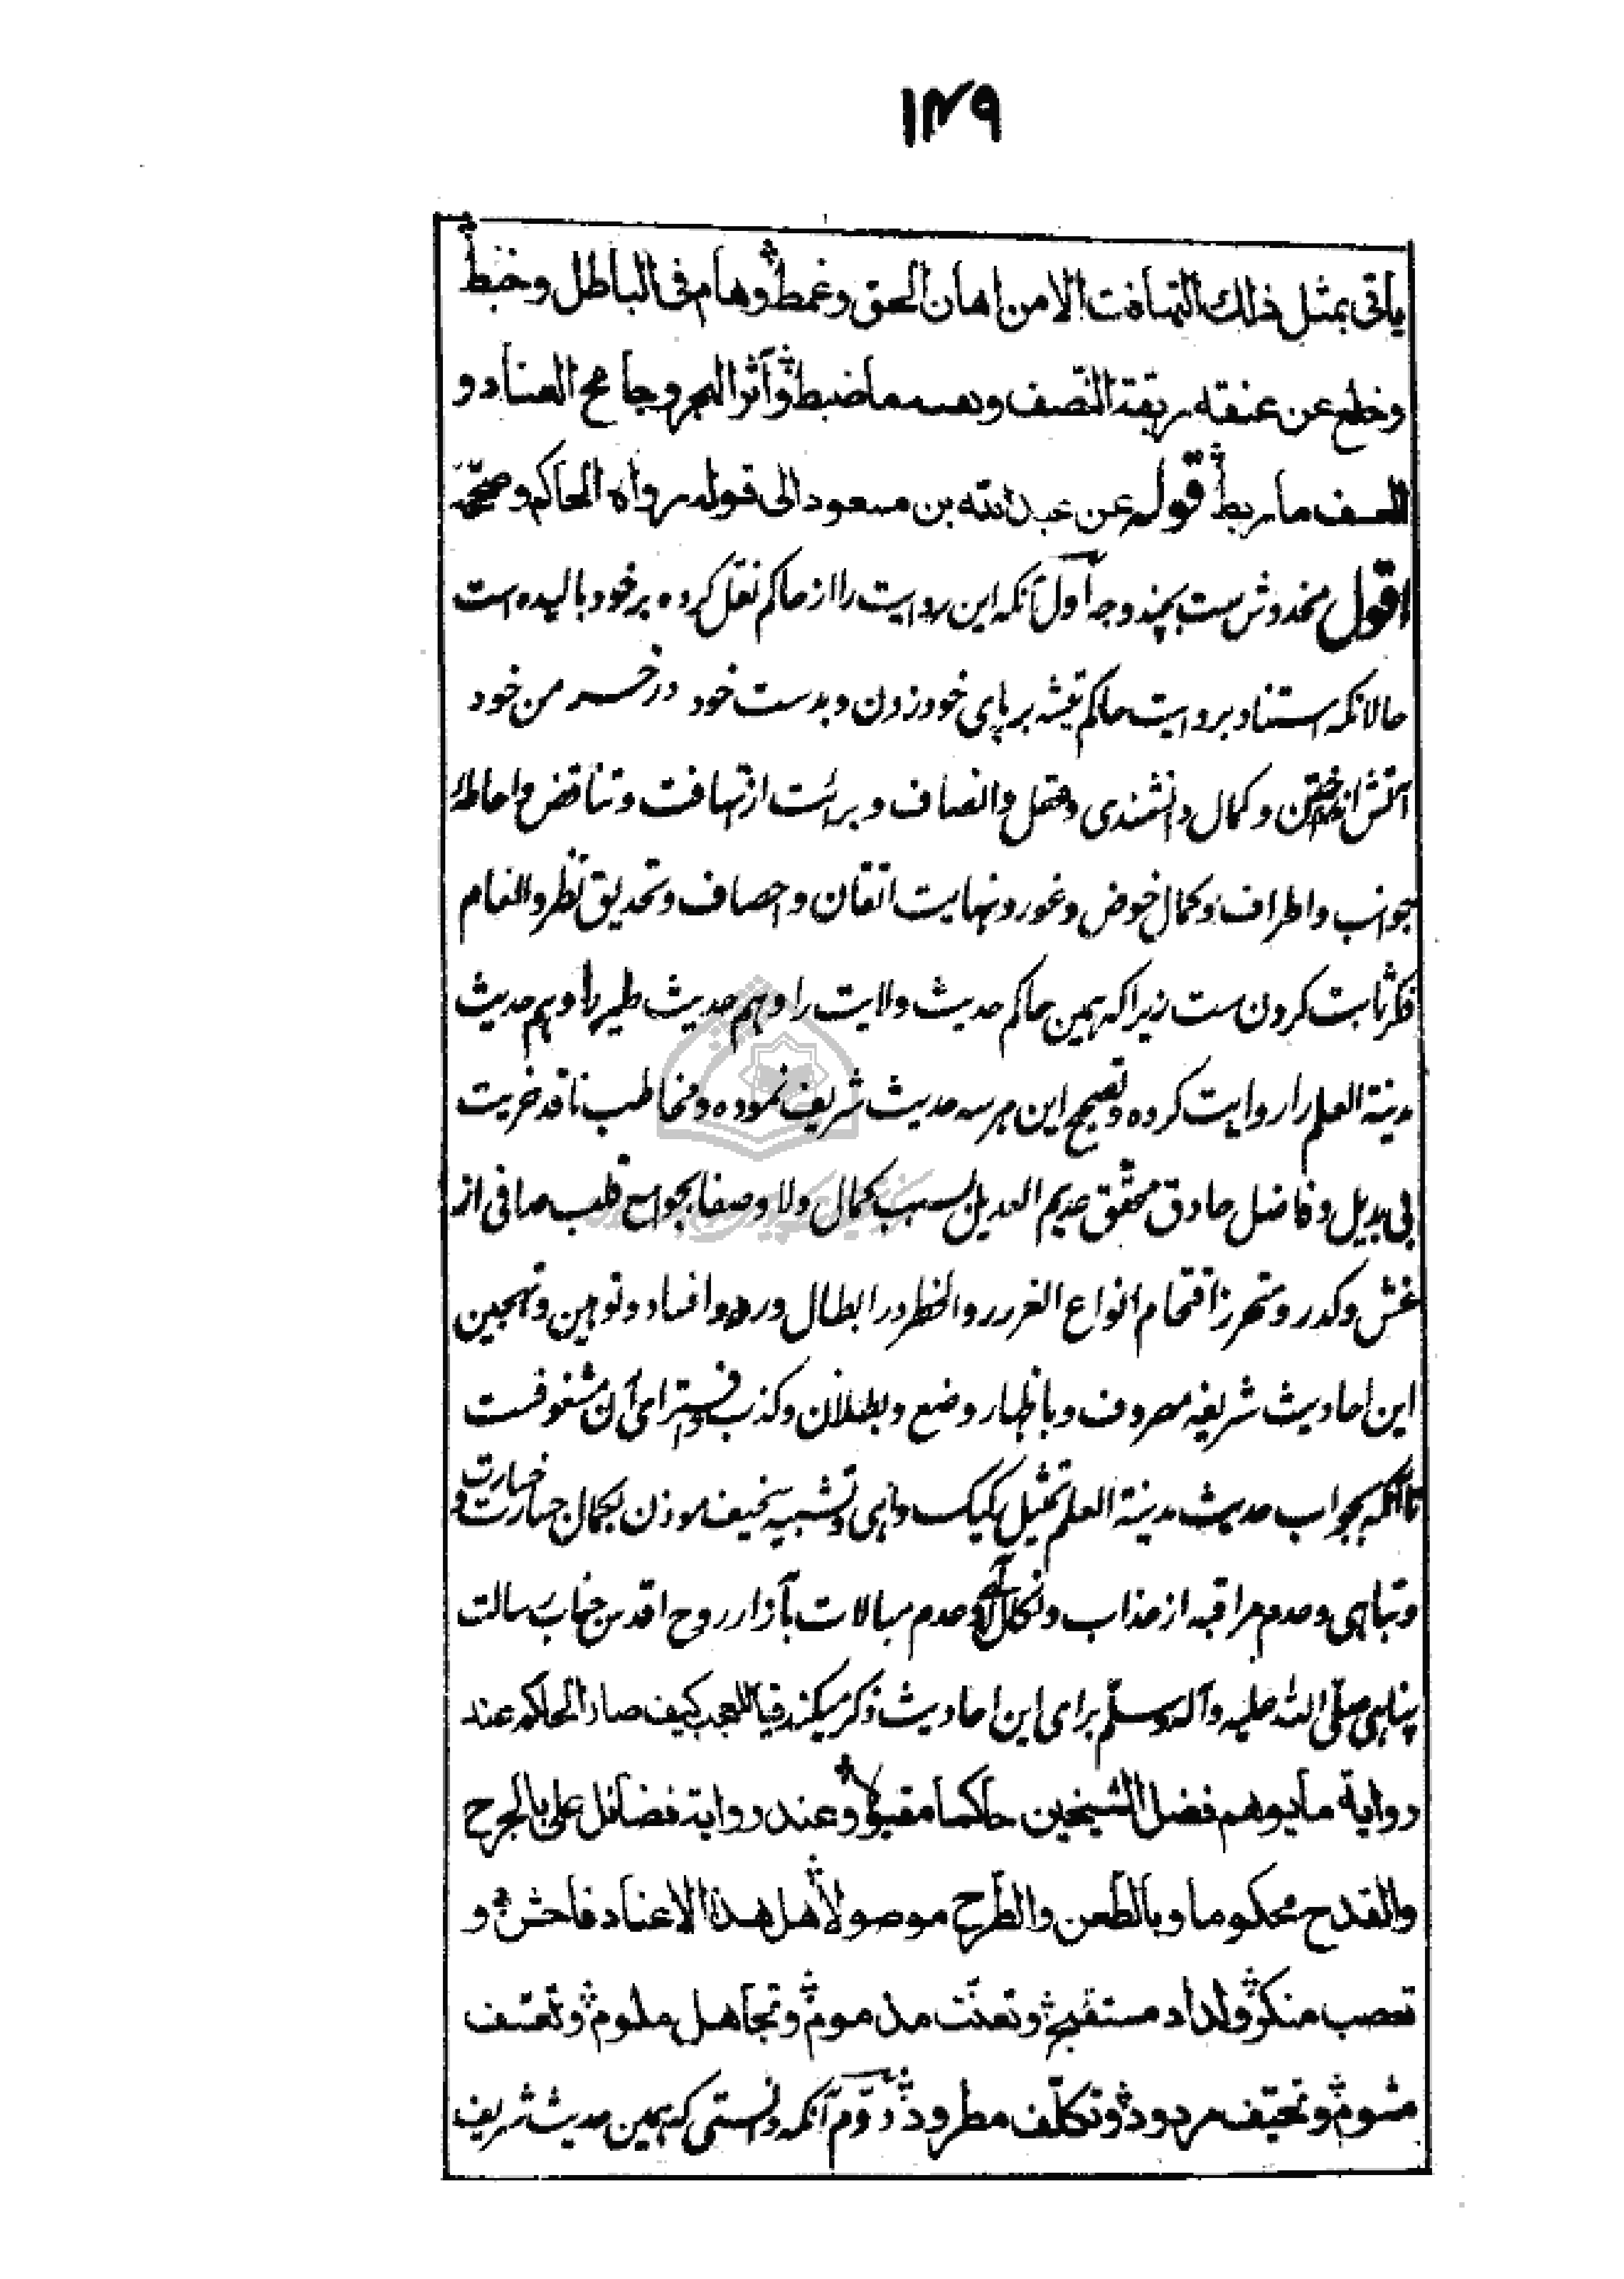 ۱۴۹
یاتی بمثل ذلك التهافت الا من اهان الحق وغمط وهام فی الباطل وخبط
وخلع عن عنقه ربقة النّصف وهسه ما ضبط وآثر الهجر وجامح العناد و
العسف ما ربط قوله عن عبد الله بن مسعود الی قوله رواه الحاکم وصحّحه
اقول مخدوش ست بچند وجه اول آنکه این روایت را از حاکم نقل کرده بر خود بالیده است
حالانکه استناد بروایت حاکم تیشه بر پای خود زدن و بدست خود در خرمن خود
آتش انداختن و کمال دانشمندی و عقل و انصاف و برائت از تهافت و تناقض و احاطهٔ
جوانب و اطراف و کمال خوض و غور و نهایت اتقان و احصاف و تحدیق نظر و انعام
فکر ثابت کردن ست زیرا که همین حاکم حدیث ولایت را و هم حدیث طیر را و هم حدیث
مدینة العلم را روایت کرده و تصحیح این هر سه حدیث شریف نموده و مخاطب ناقد خریت
بی بدیل و فاضل حاذق محقق عدیم العدیل بسبب کمال ولا و صفا بجوامع قلب صافی از
غش و کدر و متحرز از اقتحام انواع الغرر و الخطر در ابطال و رد و افساد و توهین و تهجین
این احادیث شریفه مصروف و باظهار وضع و بطلان و کذب و افترای آن مشغوفست
تا آنکه بجواب حدیث مدینة العلم تمثیل رکیک واهی و تشبیه سخیف موذن بکمال جسارت و خسارت
و تباهی و عدم مراقبه از عذاب و نکال الهی و عدم مبالات بآزار روح اقدس جناب رسالت
پناهی صلّی الله علیه وآله وسلّم برای این احادیث ذکر میکند فیا للعجب کیف صار الحاکم عند
روایة ما یوهم فضل الشیخین حاکما مقبولا وعند روایة فضائل علی بالجرح
والقدح محکوما وبالطعن والطرح موصولا هل هذا الا عناد فاحش و
تعصب منکر ولداد مستقبح وتعنّت مذموم وتجاهل ملوم وتعسّف
مشوم وتحیّف مردود وتکلّف مطرود دوّم آنکه دانستی که همین حدیث شریف